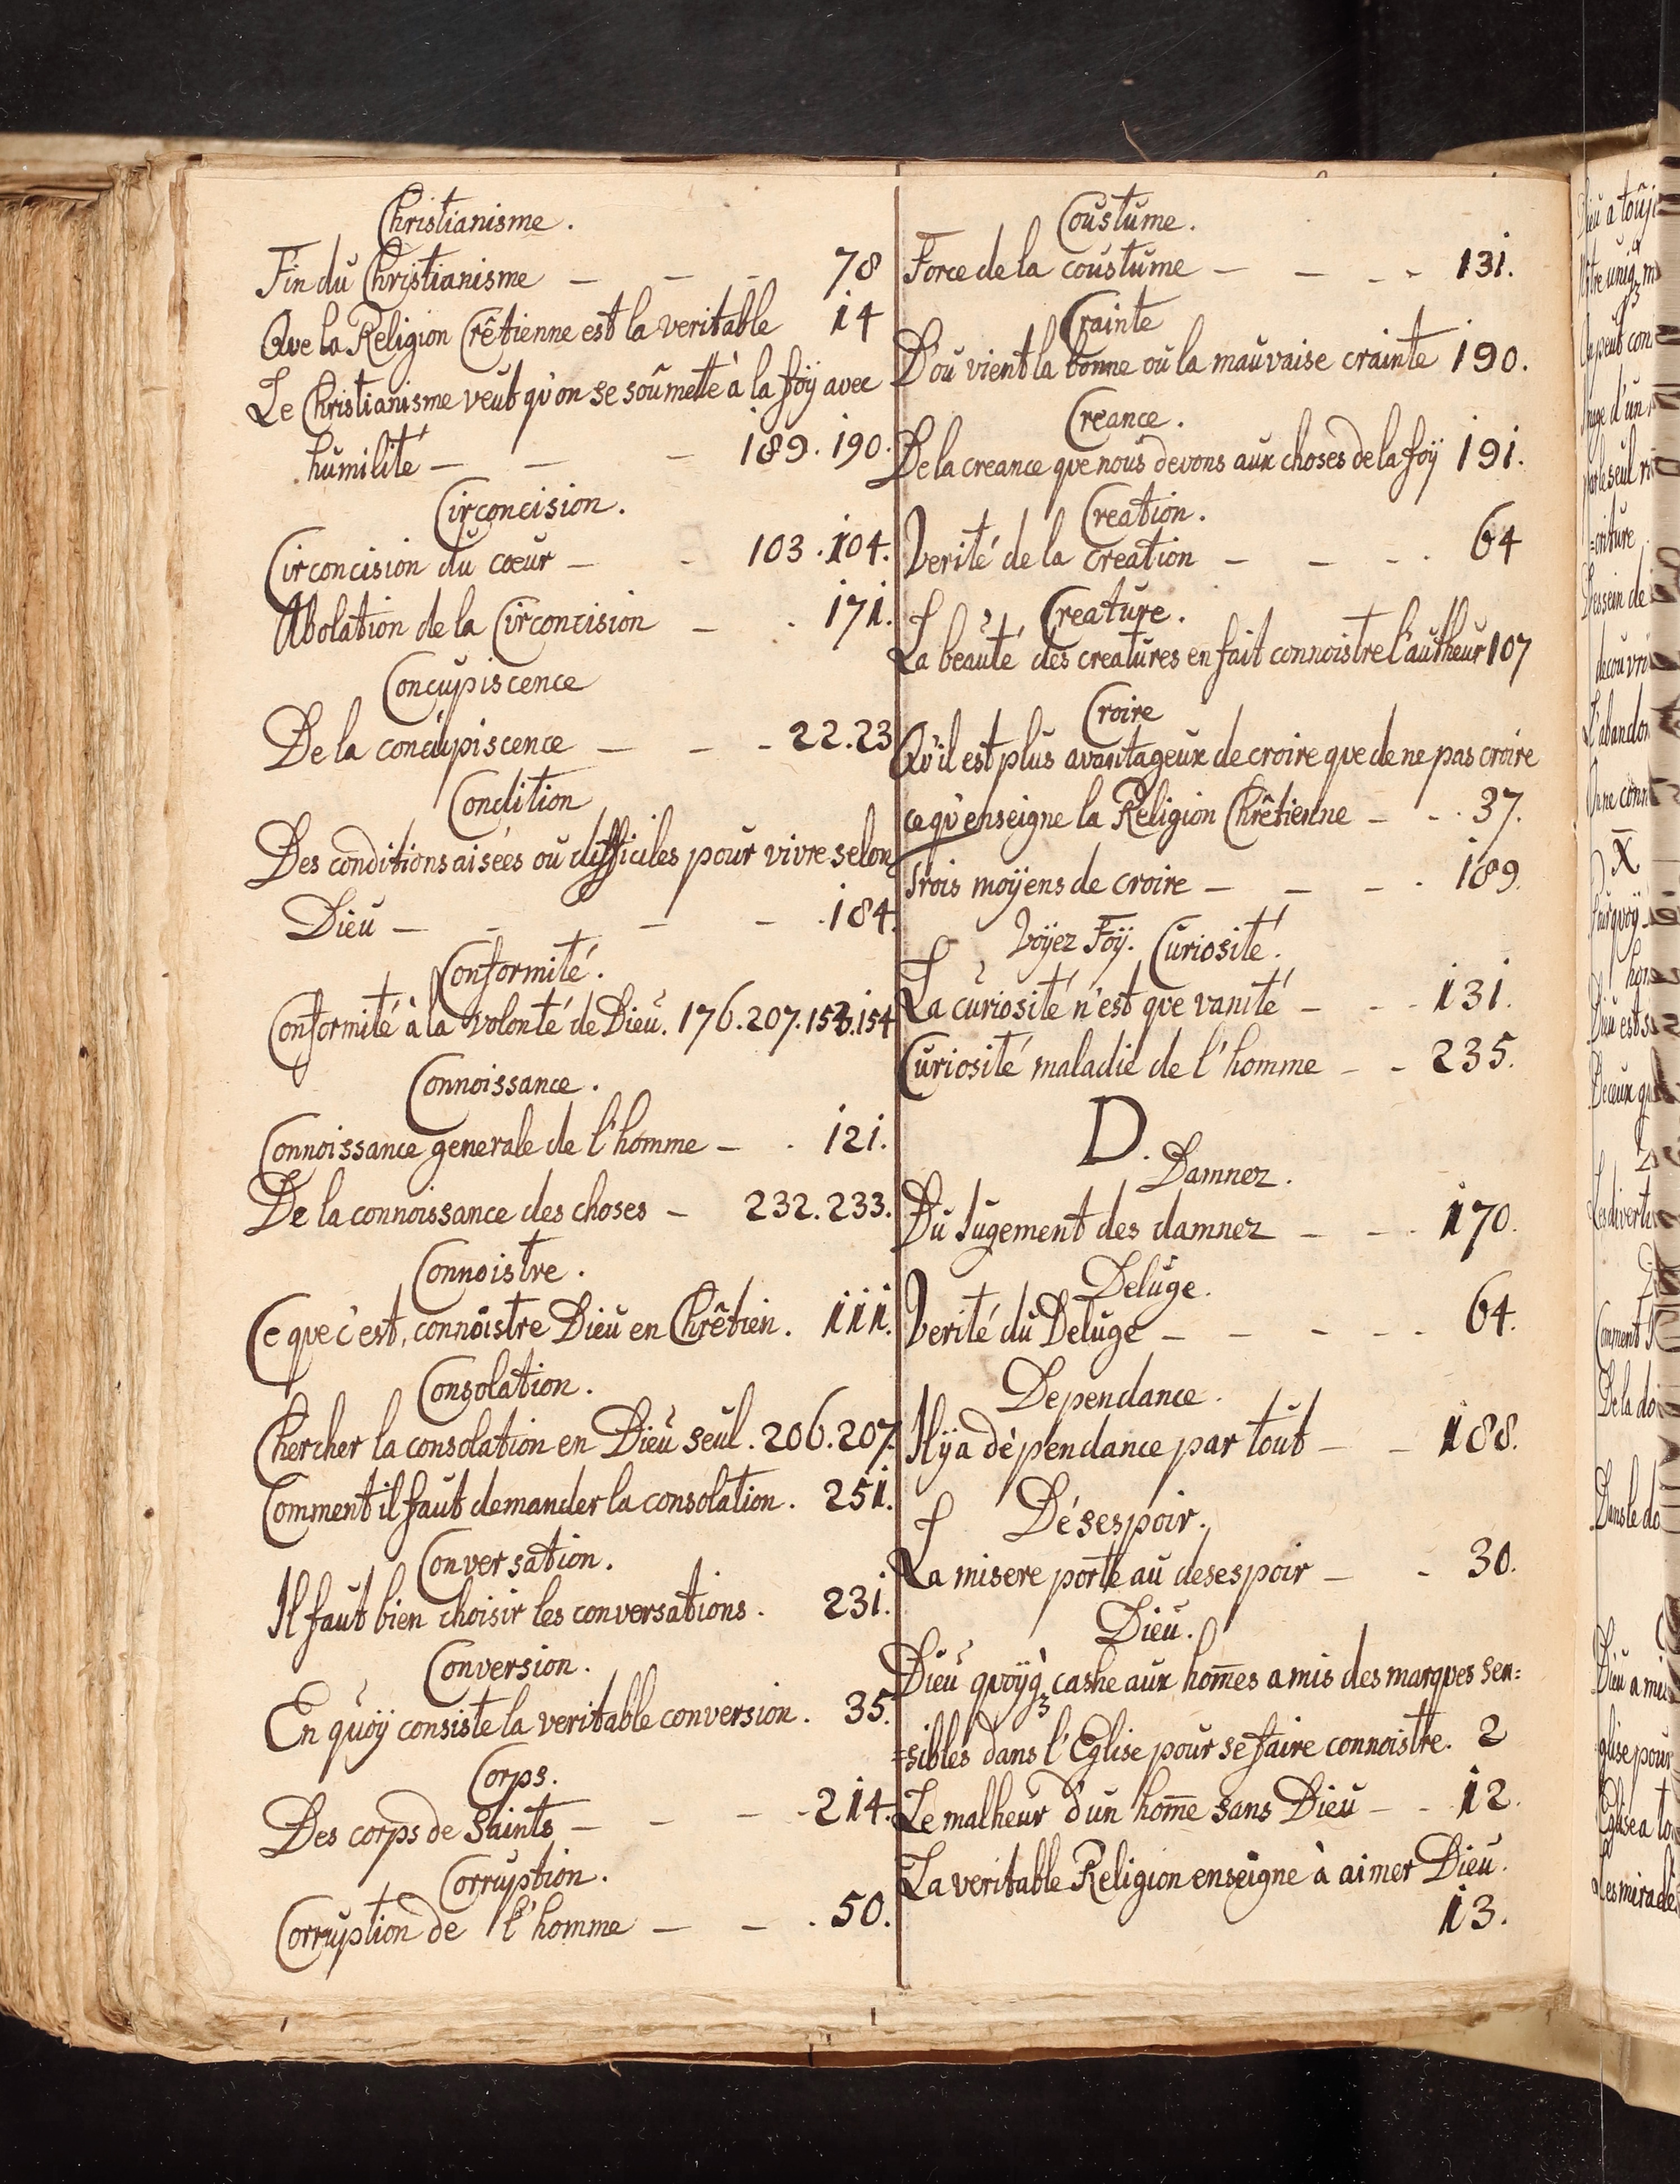 Christianisme.
Fin du Christianisme — — - 78
Que la Religion Crêtienne est la veritable 14
Le Christianisme veut qu'on se soûmette à la foÿ avec
humilité — — — 189. 190.
Circoncision.
Circoncision du cœur — - 103. 104.
Abolation de la Circoncision — . 171.
Concupiscence
De la concupiscence — — - 22. 23
Condition
Des conditions aisées ou difficiles pour vivre selon
Dieu — - — - . 184.
Conformité.
Conformité à la volonté de Dieu. 176. 207. 153. 154
Connoissance.
Connoissance generale de l'homme — . 121.
De la connoissance des choses — 232. 233.
Connoistre.
Ce que c'est, connoistre Dieu en Chrêtien. 111.
Consolation.
Chercher la consolation en Dieu seul. 206. 207.
Comment il faut demander la consolation. 251.
Conversation.
Il faut bien choisir les conversations. 231.
Conversion.
En quoÿ consiste la veritable conversion. 35.
Corps.
Des corps de Saints — - — - 214.
Corruption.
Corruption de l'homme — — . 50.
Coustume.
Force de la coustume — — - - 131.
Crainte
D'ou vient la bonne ou la mauvaise crainte 190.
Creance.
De la creance que nous devons aux choses de la foÿ 191.
Creation.
Verité de la creation — — - . 64
Creature.
La beauté des creatures en fait connoistre l'autheur 107
Croire
Qu'il est plus avantageux de croire que de ne pas croire
ce qu'enseigne la Religion Chrêtienne — - . 37.
Trois moÿens de croire — — - . 189.
Voÿez Foÿ. Curiosité.
La curiosité n'est que vanité — - - 131.
Curiosité maladie de l'homme — - 235.
D.
Damnez.
Du Jugement des damnez — — . 170.
Deluge.
Verité du Deluge — — - - . 64.
Dependance.
Il ÿ a dépendance par tout — - 188.
Désespoir.
La misere porte au desespoir — - 30.
Dieu.
Dieu quoÿq3 cashe aux hom̄es a mis des marques sen=
=sibles dans l'Eglise pour se faire connoistre. 2
Le malheur d'un hom̄e sans Dieu — - 12.
La veritable Religion enseigne à aimer Dieu.
13.